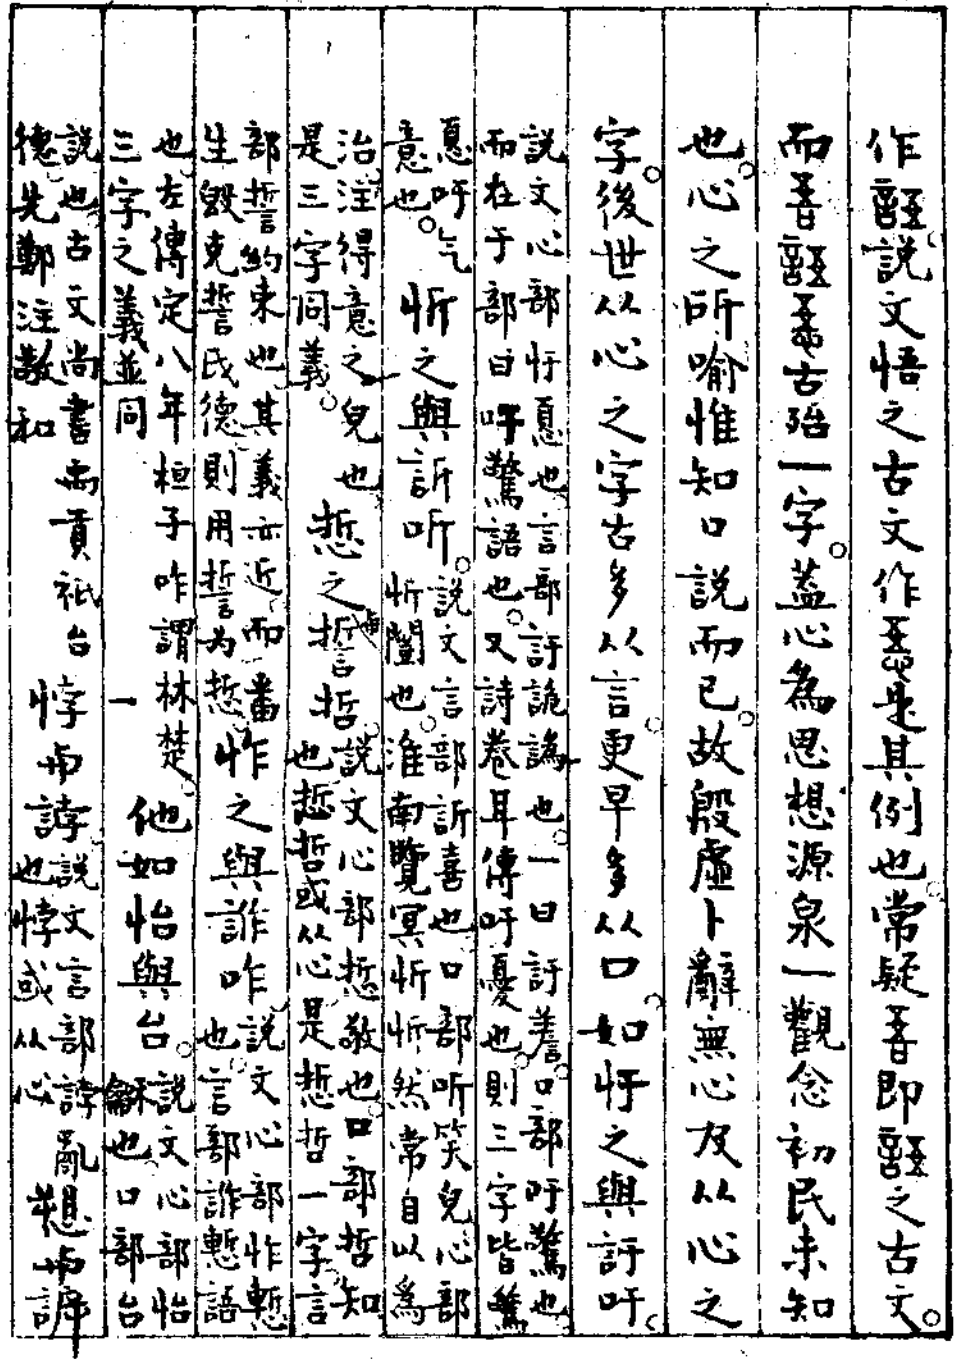 作䛩說文悟之古文作㦛是其例也常疑䛩即語之古文。
而䛩語㦛古殆一字。蓋心為思想源泉一觀念初民未知
也。心之所喻惟知口說而已。故殷虛卜辭無心及从心之
字。後世从心之字古多从言。更早多从口。如忓之與訏吁。
說文心部忓𢝊也言部訏詭譌也。一曰訏𧪜。口部吁驚也
而在于部曰吁驚語也。又詩卷耳傳吁憂也。則三字皆驚
𢝊吁气
意也。忻之與訢听。說文言部訢喜也口部听笑皃心部
忻闓也。淮南覽冥忻忻然常自以為
治注得意之皃也
是三字同義。悊之誓哲。說文心部悊敬也。口部哲知
也悊哲或从心是悊哲一字言
部誓約束也其義亦近而番
生毀克誓氏德則用誓为悊。怍之與詐咋。說文心部怍慙
也。言部詐慙語
也左傳定八年桓子咋謂林楚。
三字之義並同。他如怡與台。說文心部怡
龢也。口部台
說也古文尚書禹貢祇台
德先鄭注敬和 悖与誖說文言部誖亂
也悖或从心 諰与